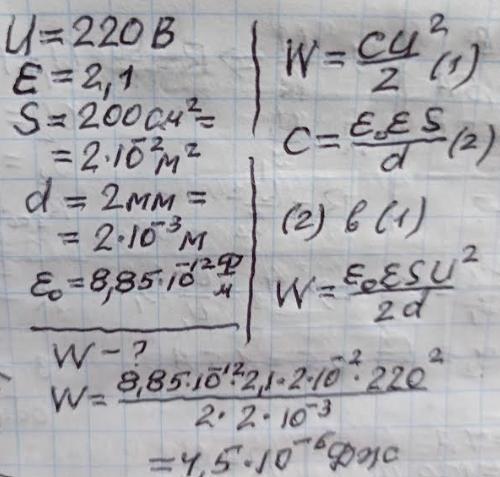 U = 220 В
ε = 2,1
S = 200 см² =
= 2·10⁻² м²
d = 2 мм =
= 2·10⁻³ м
ε₀ = 8,85·10⁻¹² Ф/м
W – ?
W = CU²/2 (1)
C = ε₀εS/d (2)
(2) в (1)
W = ε₀εSU²/2d
W = 8,85·10⁻¹²·2,1·2·10⁻²·220²/2·2·10⁻³
= 4,5·10⁻⁶ Дж